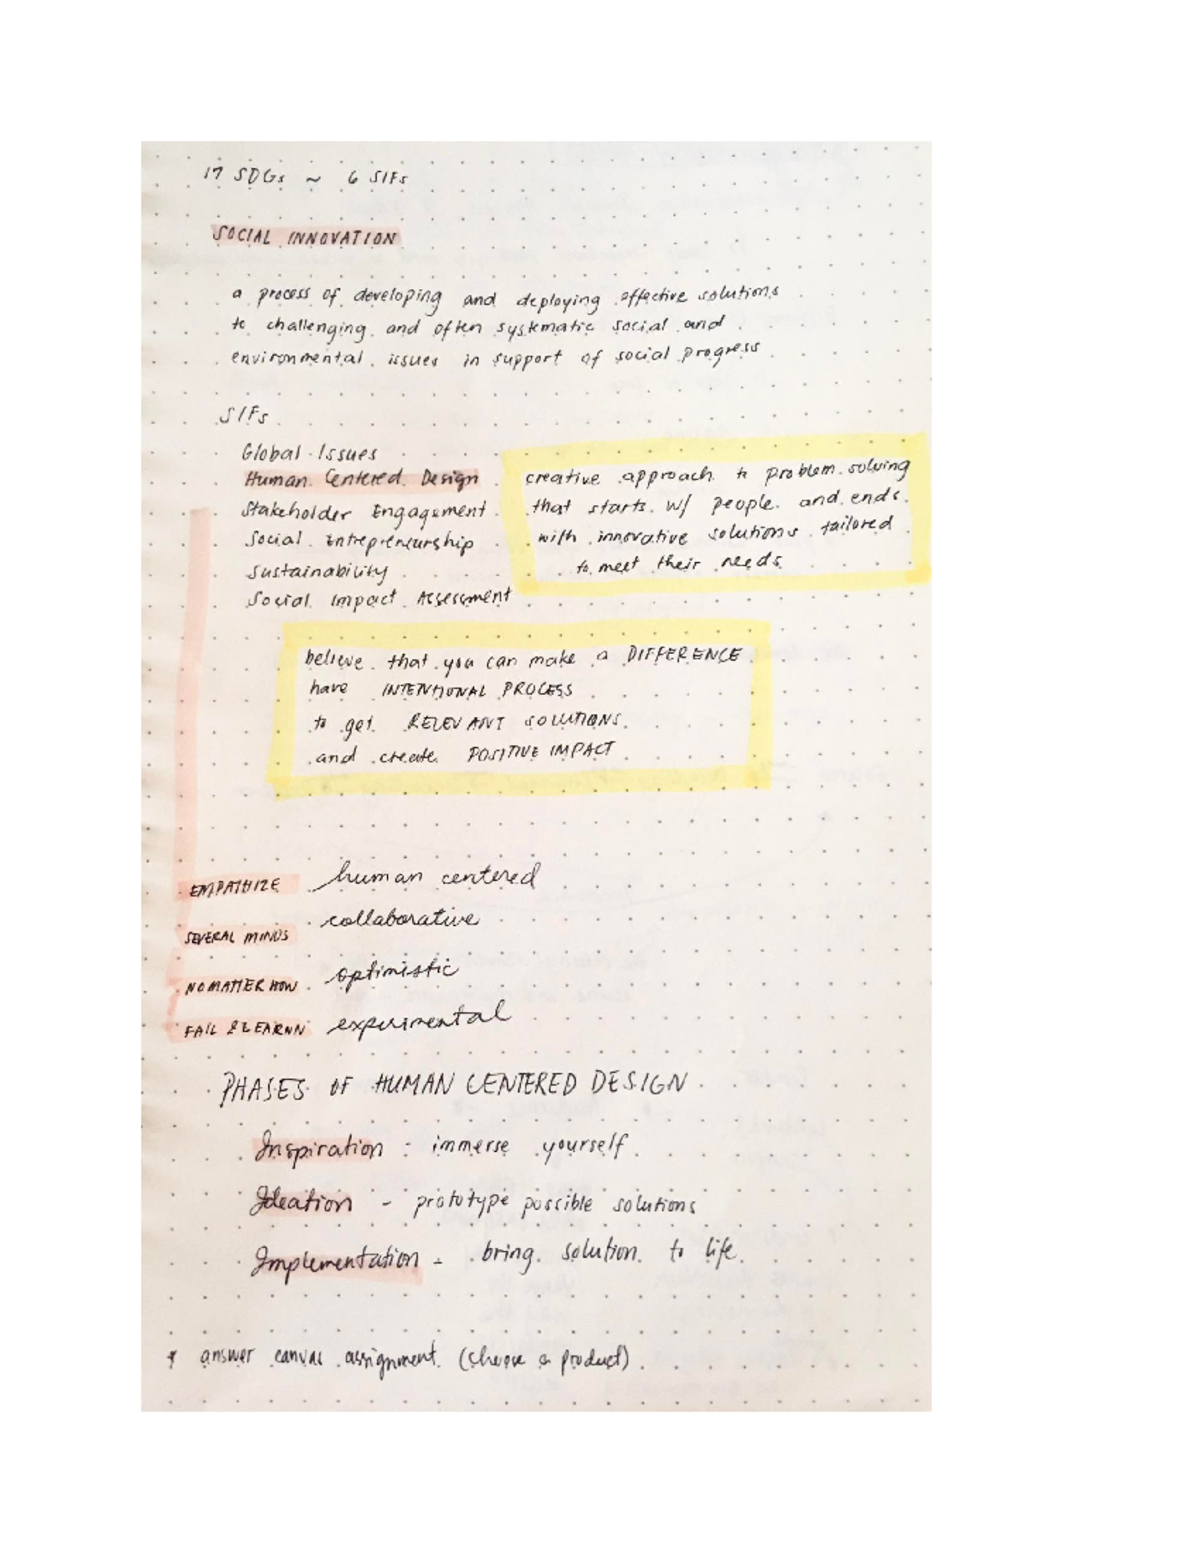 17 SDGs ~ 6 SIFs
SOCIAL INNOVATION
a process of developing and deploying effective solutions
to challenging and often systematic social and
environmental issues in support of social progress
SIFs
Global Issues
Human Centered Design
Stakeholder Engagement
Social Entrepreneurship
Sustainability
Social Impact Assessment
creative approach to problem solving
that starts w/ people and ends
with innovative solutions tailored
to meet their needs
believe that you can make a DIFFERENCE
have INTENTIONAL PROCESS
to get RELEVANT SOLUTIONS
and create POSITIVE IMPACT
EMPATHIZE human centered
SEVERAL MINDS collaborative
NO MATTER HOW optimistic
FAIL & LEARNN experimental
PHASES OF HUMAN CENTERED DESIGN
Inspiration : immerse yourself
Ideation - prototype possible solutions
Implementation - bring solution to life
* answer canvas assignment (choose a product)